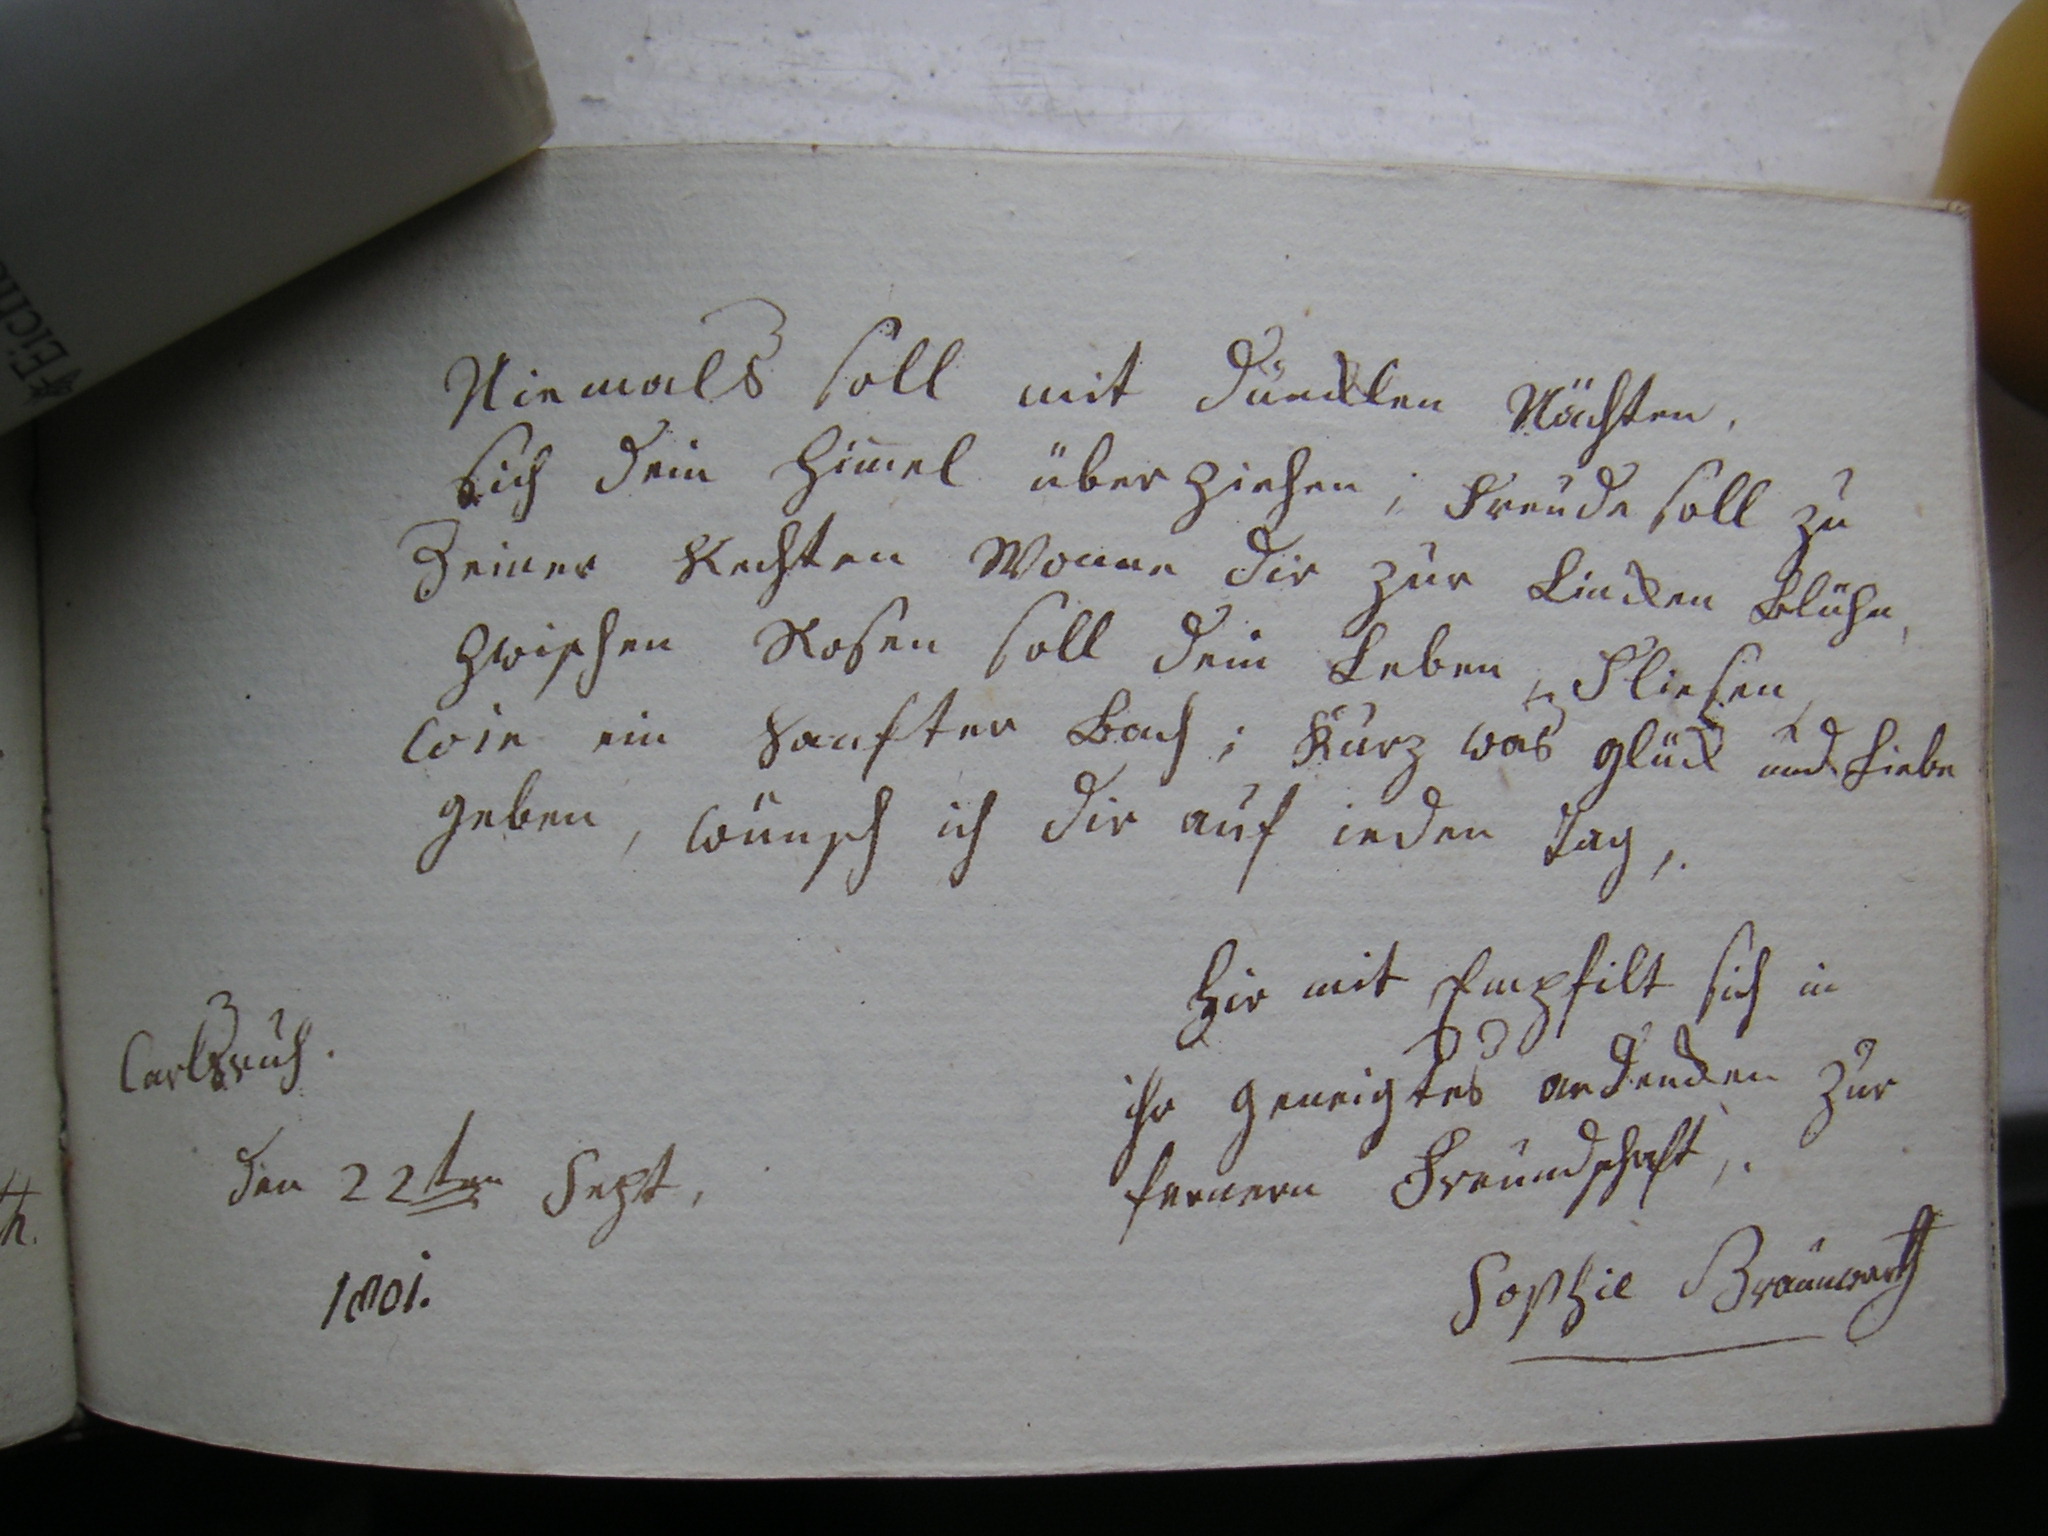 Niemals soll mit duncklen Nächten,
sich dein Himel über ziehen; Freude soll zu
Deiner Rechten Wonne dir zur Lincken Blühn,
Zwischen Rosen soll dein Leben, Fliesen,
wie ein Sanfter Bach; Kurz was glück und Liebe
geben, wünsch ich dir auf ieden Tag,.
Hir mit Empfilt sich in
ihr geneigtes andencken zur
fernern Freundschaft,.
Carlsruh.
den 22ten Sept,
1801.
Sophie Braunwarth